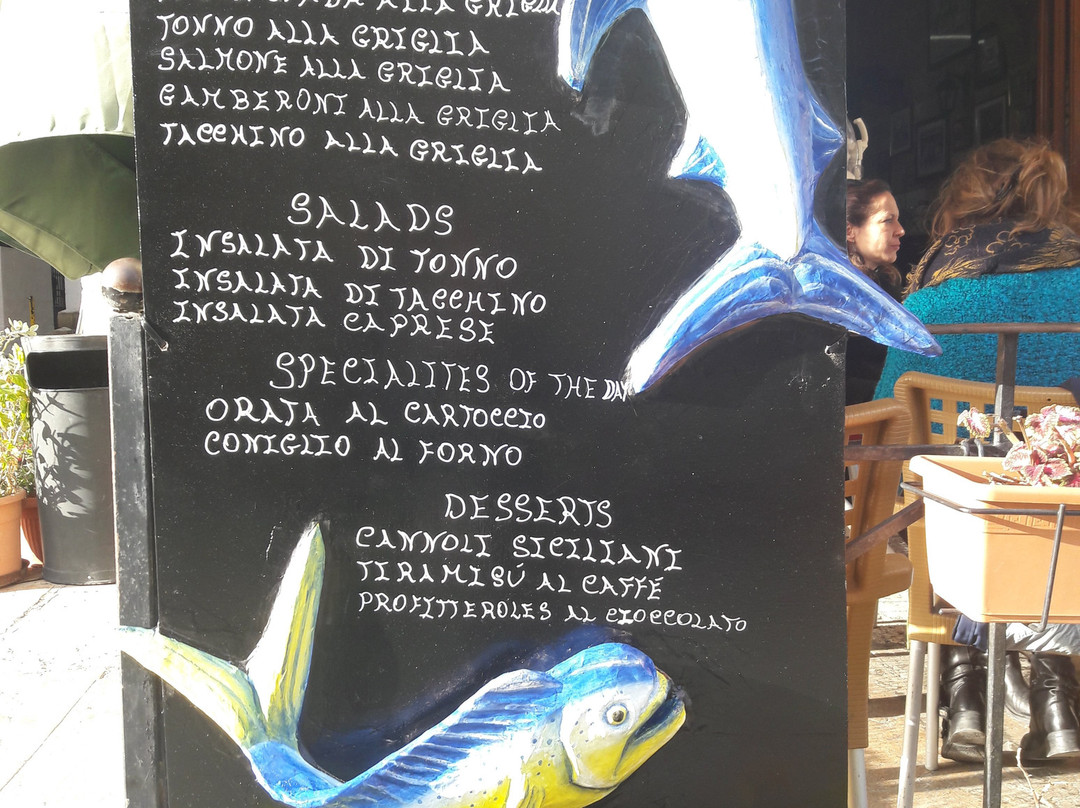 ALLA GRIGLIA
TONNO ALLA GRIGLIA
SALMONE ALLA GRIGLIA
GAMBERONI ALLA GRIGLIA
TACCHINO ALLA GRIGLIA
SALADS
INSALATA DI TONNO
INSALATA DI TACCHINO
INSALATA CAPRESE
SPECIALITES OF THE DAY
ORATA AL CARTOCCIO
CONIGLIO AL FORNO
DESSERTS
CANNOLI SICILIANI
TIRAMISÚ AL CAFFÉ
PROFITTEROLES AL CIOCCOLATO